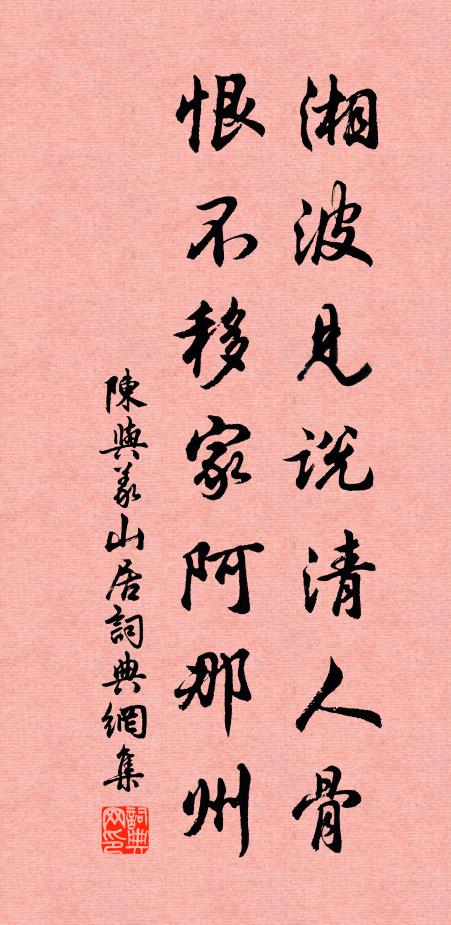 湘波見説清人骨
恨不移家阿那州
陳與義山居詞典網集
詞典网印